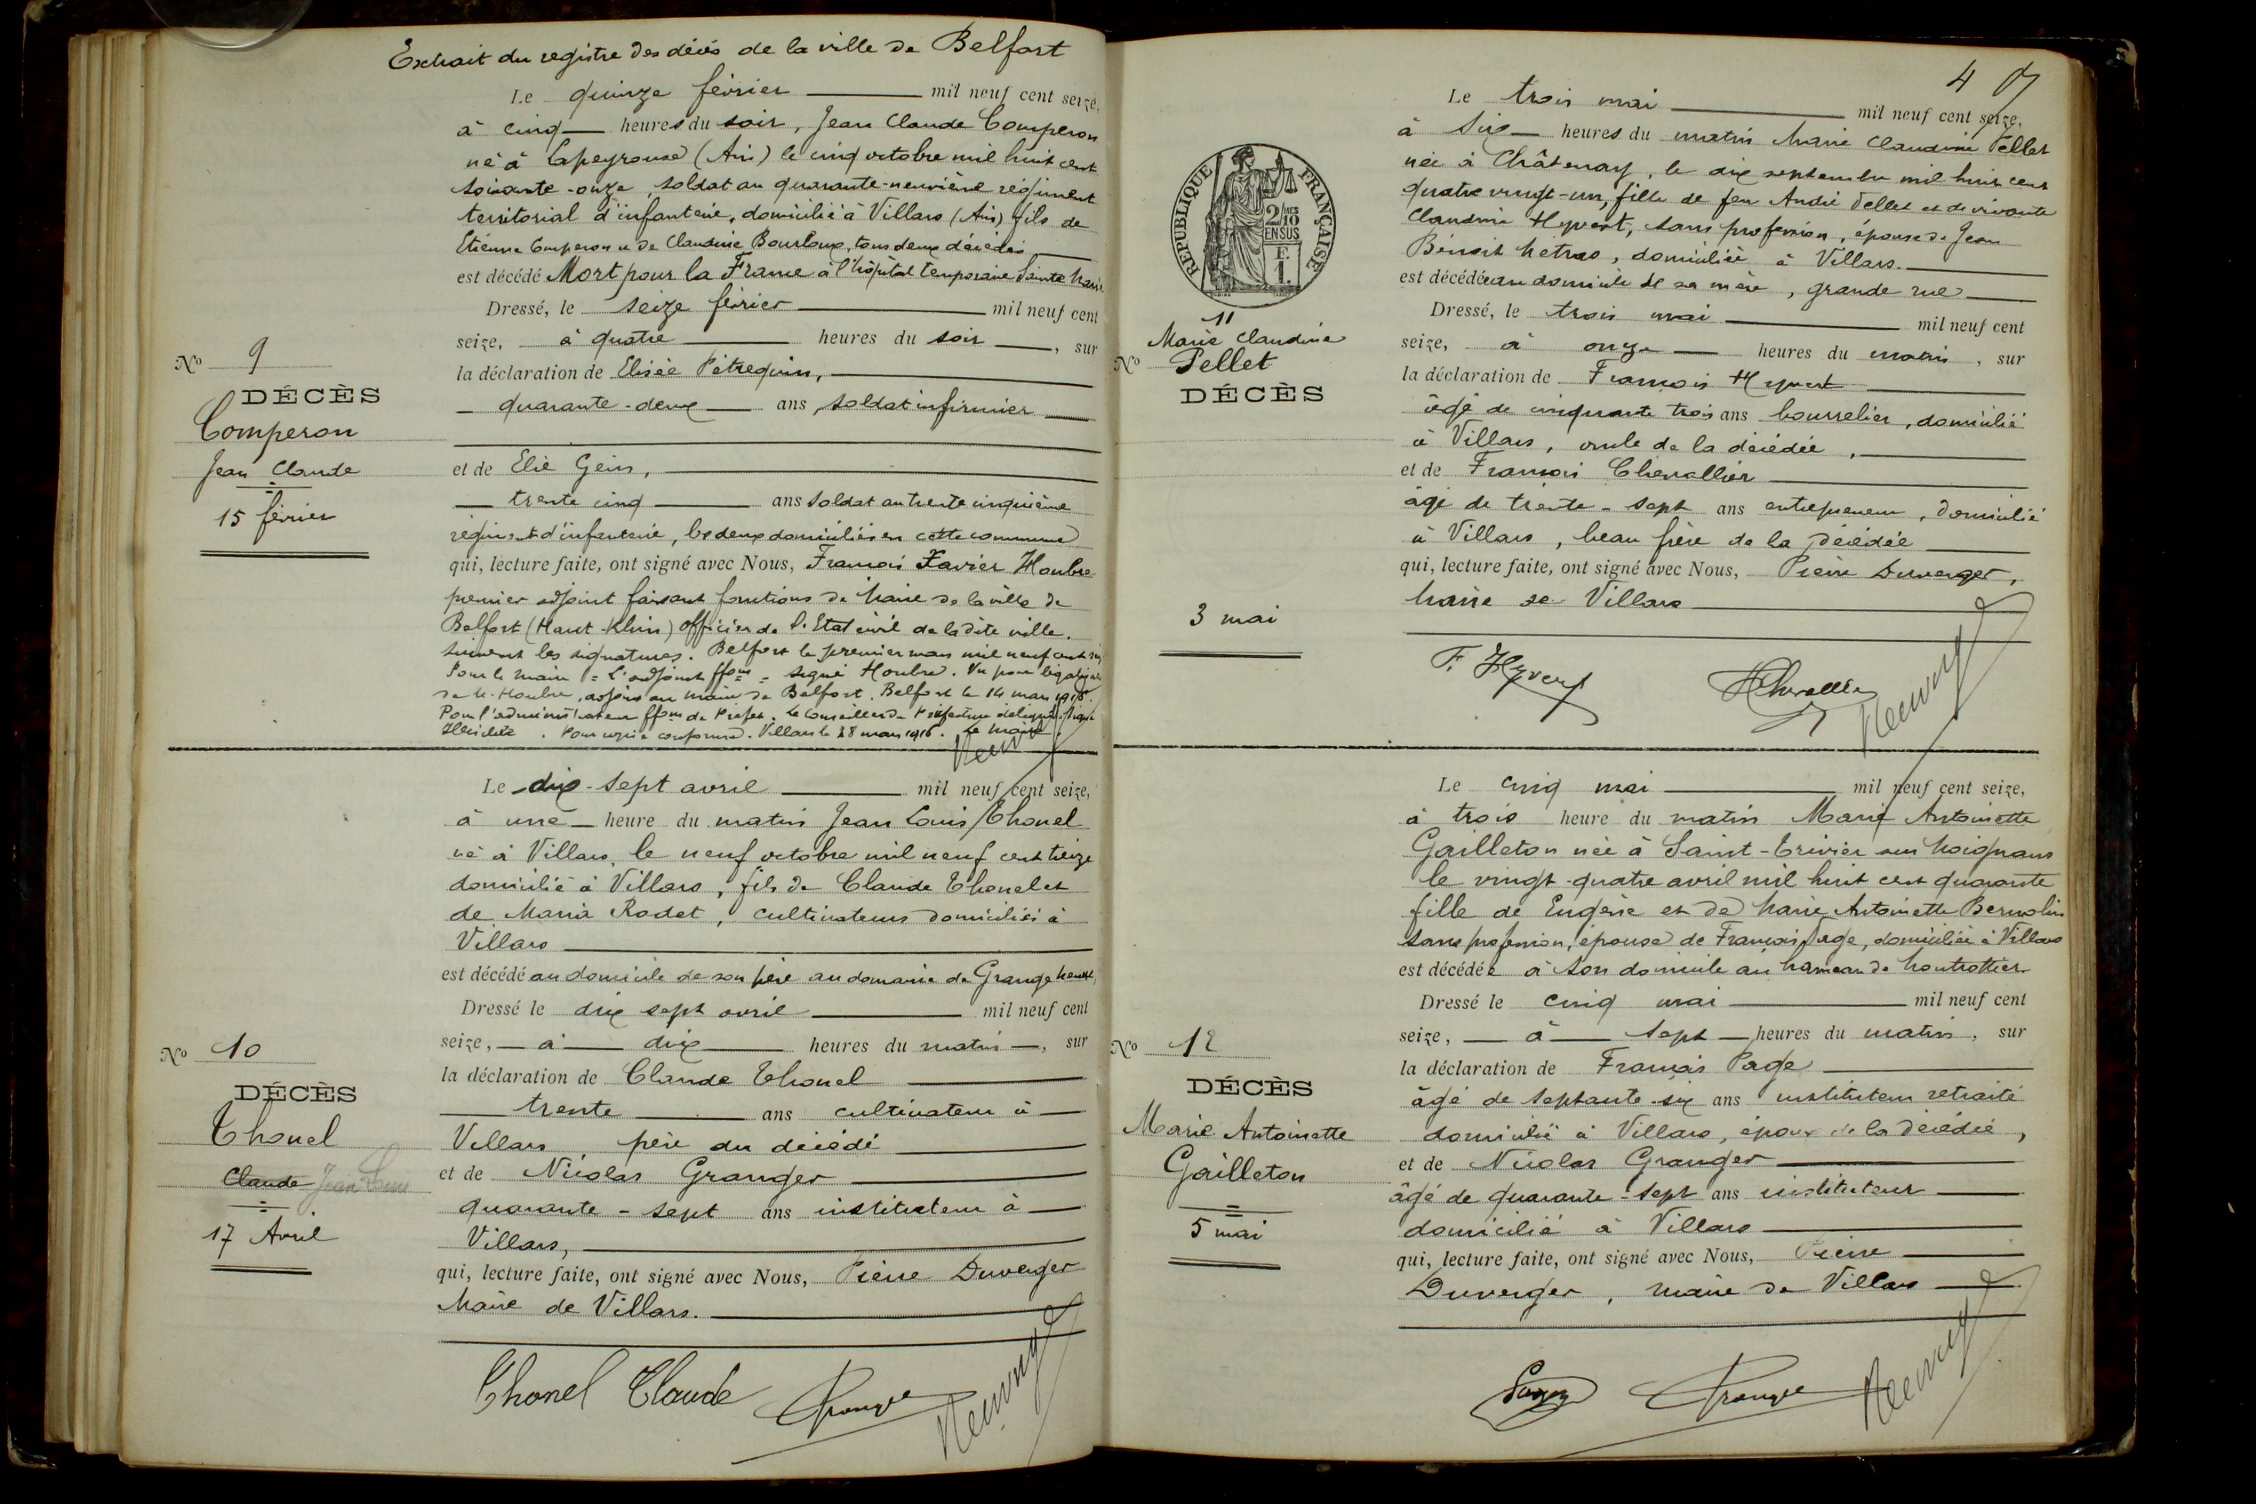 Extrait du registre des décés de la ville de Belfort
Le quinze février mil neuf cent seize,
à cinq heures du soir, Jean Claude Comperon
né à Lapeyrouse (Ain) le cinq octobre mil huit cent
soixante-onze, soldat au quarante-neuvième régiment
territorial d'infanterie, domicilié à Villars (Ain) fils de
Etienne Comperon et de Claudine Bourloux, tous deux décédés
est décédé Mort pour la France à l'hôpital temporaire Sainte Marie
Dressé, le seize février mil neuf cent
seize, à quatre heures du soir, sur
la déclaration de Elisée Pétrequin,
quarante-deux ans, soldat infirmier
et de Elie Gein,
trente cinq ans soldat au trente cinquième
régiment d'infanterie, les deux domiciliés en cette commune
qui, lecture faite, ont signé avec Nous, François Xavier Houbre
premier adjoint faisant fonctions de Maire de la ville de
Belfort (Haut-Rhin) officier de l'Etat civil de la dite ville.
Suivent les signatures. Belfort le premier mars mil neuf cent
Pour le Maire = L'adjoint ffons = signé Houbre. Vu pour légalisation
de M. Houbre, adjoint au maire de Belfort. Belfort le 14 mars 1916.
Pour l'administrateur ffons de Préfet. Le Conseiller de Préfecture délégué, signé
Pour copie conforme. Villars le 28 mars 1916. Le Maire
No 9
DÉCÈS
Comperon
Jean Claude
15 février
Le dix-sept avril mil neuf cent seize,
à une heure du matin Jean Louis Thonel
né à Villars, le neuf octobre mil neuf cent treize
domicilié à Villars, fils de Claude Thonel et
de Maria Rodet, cultivateurs domiciliés à
Villars
est décédé au domicile de son père au domaine de Grange neuve,
Dressé le dix sept avril mil neuf cent
seize, à dix heures du matin, sur
la déclaration de Claude Thonel
trente ans cultivateur à
Villars père du décédé
et de Nicolas Granger
quarante-sept ans instituteur à
Villars,
qui, lecture faite, ont signé avec Nous, Pierre Duverger
Maire de Villars.
No 10
DÉCÈS
Thonel
Claude Jean Louis
17 Avril
Thonel Claude
4
RÉPUBLIQUE FRANÇAISE
2/10 MES
EN SUS
E.
1.
Le trois mai mil neuf cent seize,
à Six heures du matin Marie Claudine Pellet
née à Châtenay, le dix septembre mil huit cent
quatre vingt-un, fille de feu André Pellet et de vivante
Claudine Hyvert, sans profession, épouse de Jean
Benoit Metras, domiciliée à Villars.
est décédée au domicile de sa mère, grande rue
Dressé, le trois mai mil neuf cent
seize, à onze heures du matin, sur
la déclaration de François Hyvert
âgé de cinquante trois ans bourrelier, domicilié
à Villars, oncle de la décédée,
et de François Chevallier
âgé de trente-sept ans entrepreneur, domicilié
à Villars, beau frère de la décédée
qui, lecture faite, ont signé avec Nous, Pierre Duverger,
Maire de Villars
11
Marie Claudine
No Pellet
DÉCÈS
3 mai
F. Hyvert
Le cinq mai mil neuf cent seize,
à trois heure du matin Marie Antoinette
Gailleton née à Saint-Trivier sur Moignans
le vingt-quatre avril mil huit cent quarante
fille de Eugène et de Marie Antoinette Bernolin
sans profession, épouse de François Page, domiciliée à Villars
est décédée à son domicile au hameau de Montrottier
Dressé le cinq mai mil neuf cent
seize, à sept heures du matin, sur
la déclaration de François Page
âgé de septante-six ans instituteur retraité
domicilié à Villars, époux de la décédée,
et de Nicolas Granger
âgé de quarante-sept ans instituteur
domicilié à Villars
qui, lecture faite, ont signé avec Nous, Pierre
Duverger, maire de Villars
No 12
DÉCÈS
Marie Antoinette
Gailleton
5 mai